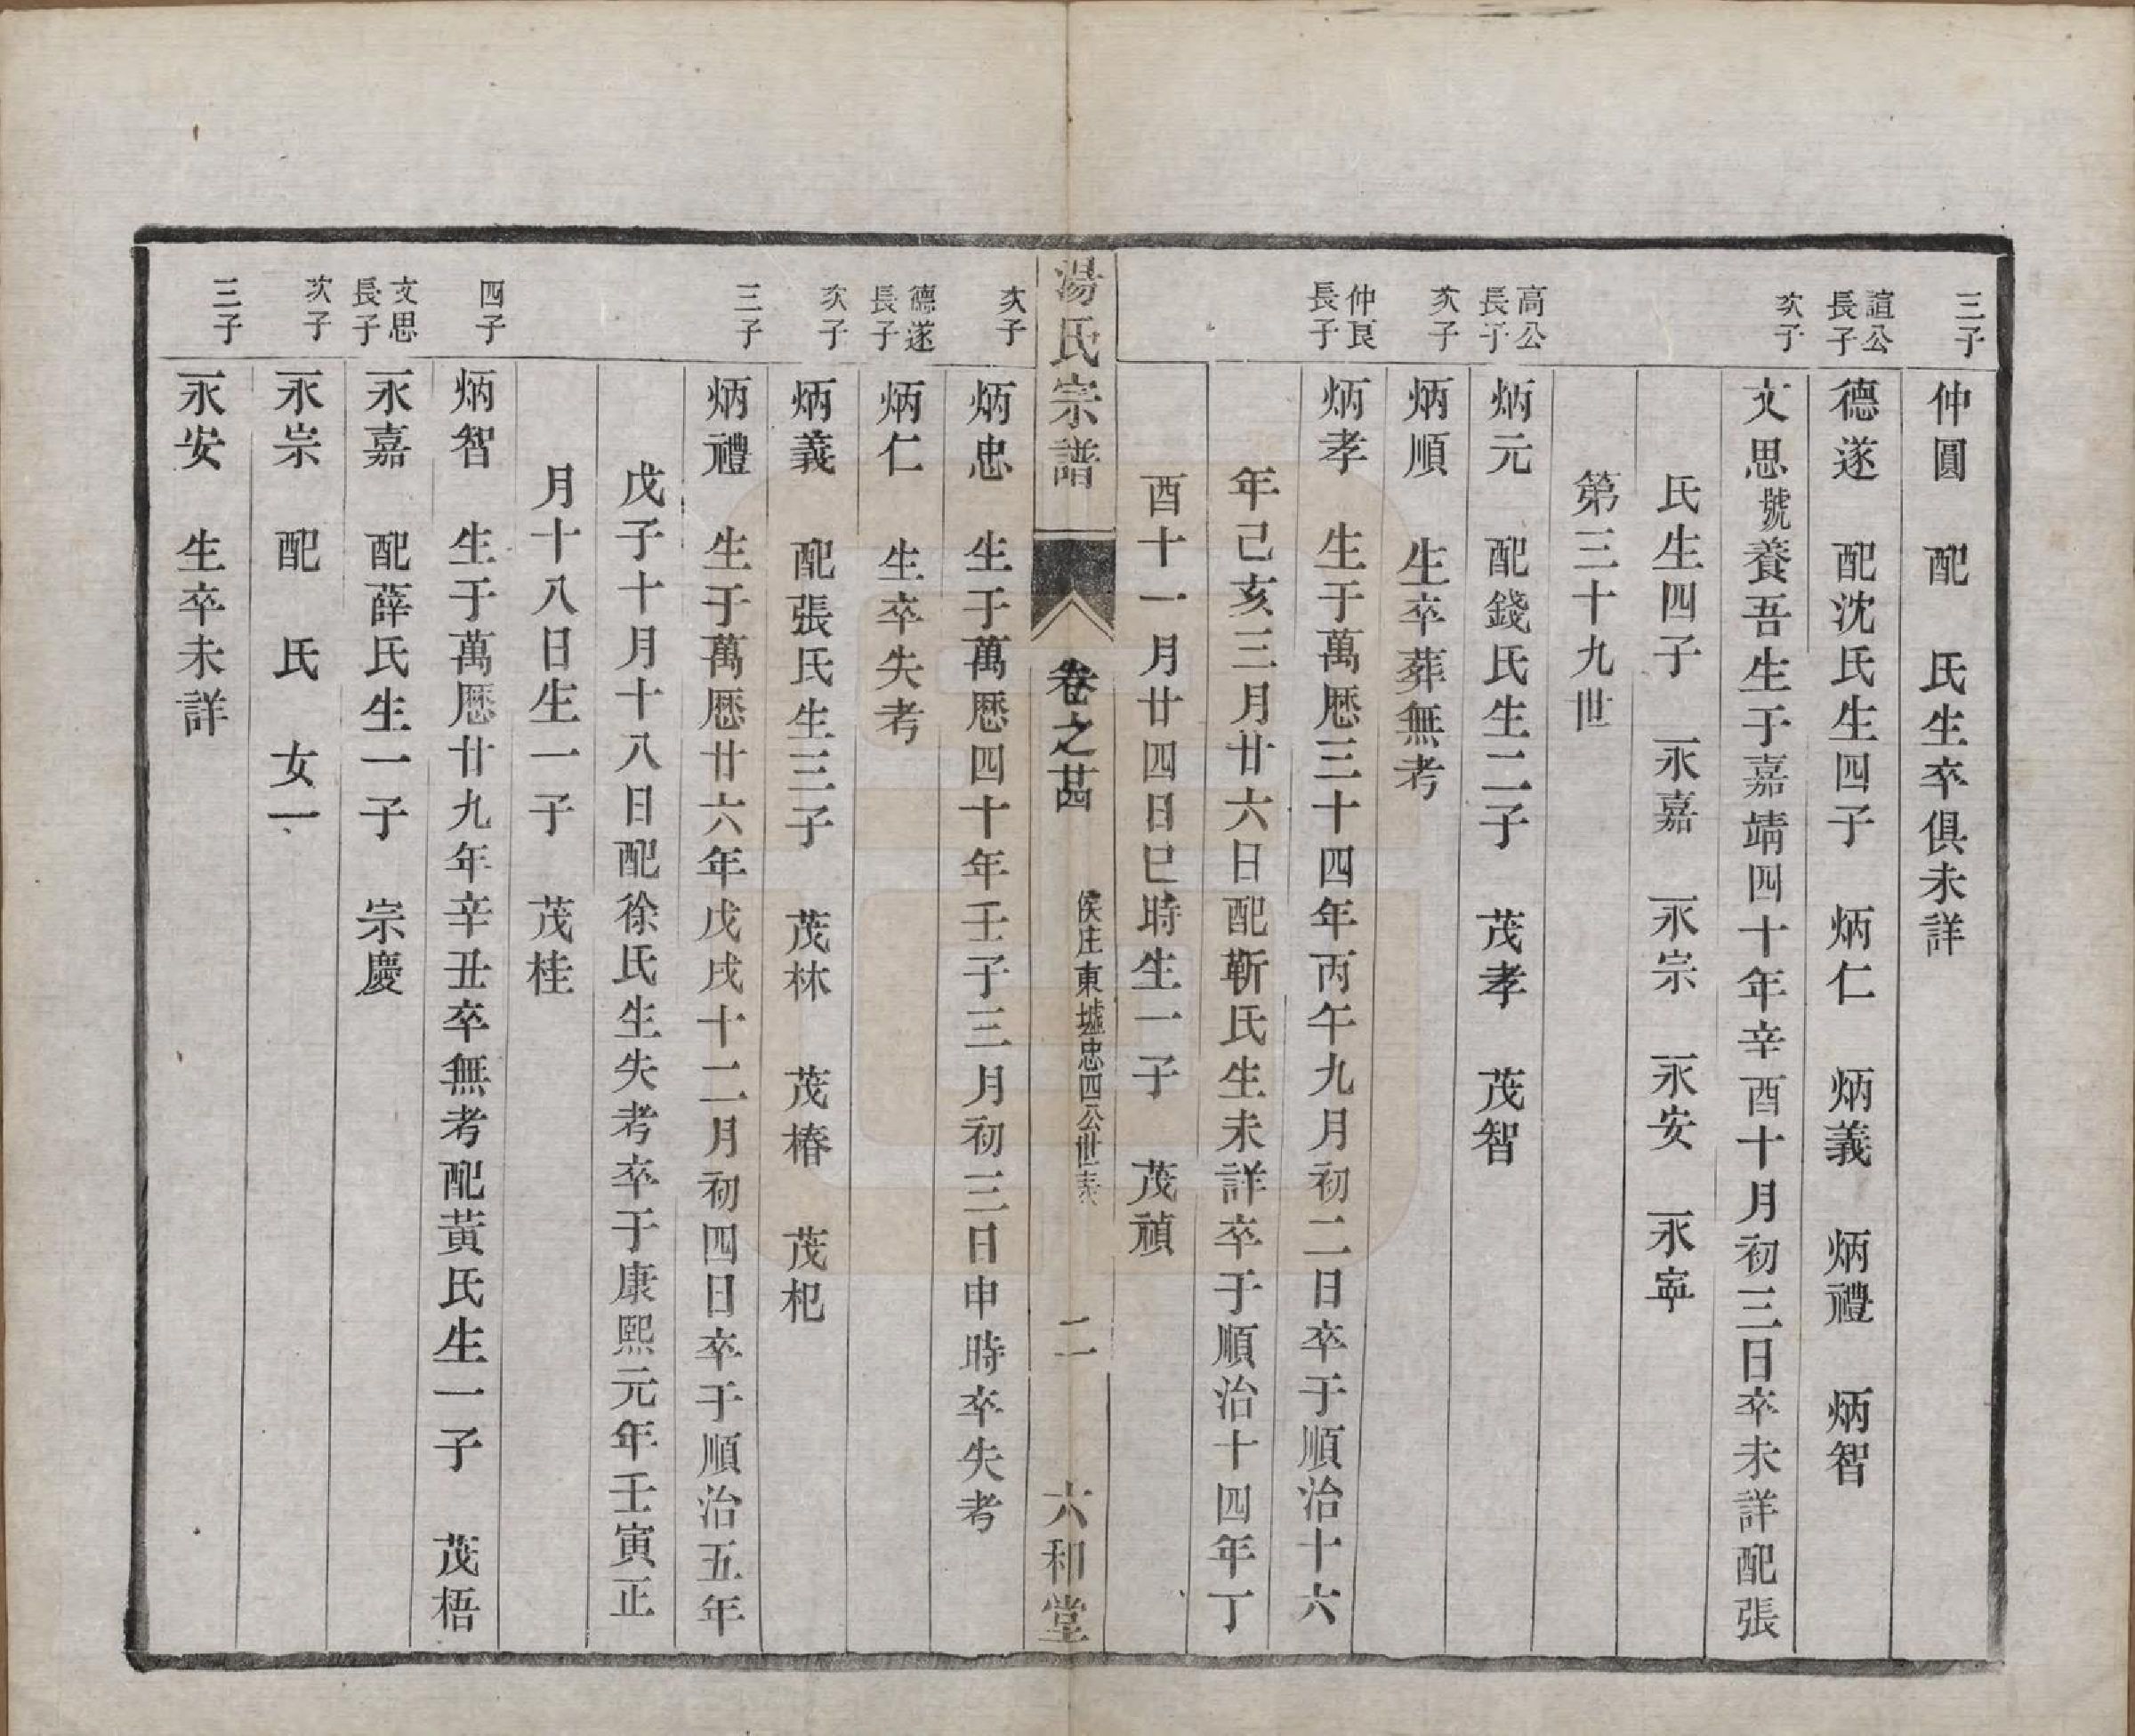 三子
仲圓　配　氏生卒俱未詳
誼公長子
德遂　配沈氏生四子　炳仁　炳義　炳禮　炳智
次子
文思號養吾生于嘉靖四十年辛酉十月初三日卒未詳配張
氏生四子　永嘉　永宗　永安　永寧
第三十九世
高公長子
炳元　配錢氏生二子　茂孝　茂智
次子
炳順　生卒葬無考
仲良長子
炳孝　生于萬厯三十四年丙午九月初二日卒于順治十六
年己亥三月廿六日配靳氏生未詳卒于順治十四年丁
酉十一月廿四日巳時生一子　茂禎
湯氏宗譜　卷之茁　侯庄東墟忠四公世表　二　六和堂
次子
炳忠　生于萬厯四十年壬子三月初三日申時卒失考
德遂長子
炳仁　生卒失考
次子
炳義　配張氏生三子　茂林　茂椿　茂杞
三子
炳禮　生于萬厯廿六年戊戌十二月初四日卒于順治五年
戊子十月十八日配徐氏生失考卒于康熙元年壬寅正
月十八日生一子　茂桂
四子
炳智　生于萬厯廿九年辛丑卒無考配黃氏生一子　茂梧
文思長子
永嘉　配薛氏生一子　宗慶
次子
永宗　配　氏　女一
三子
永安　生卒未詳